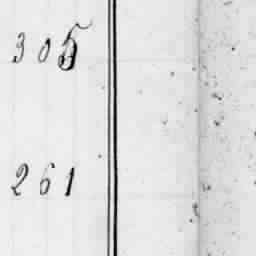 305
261